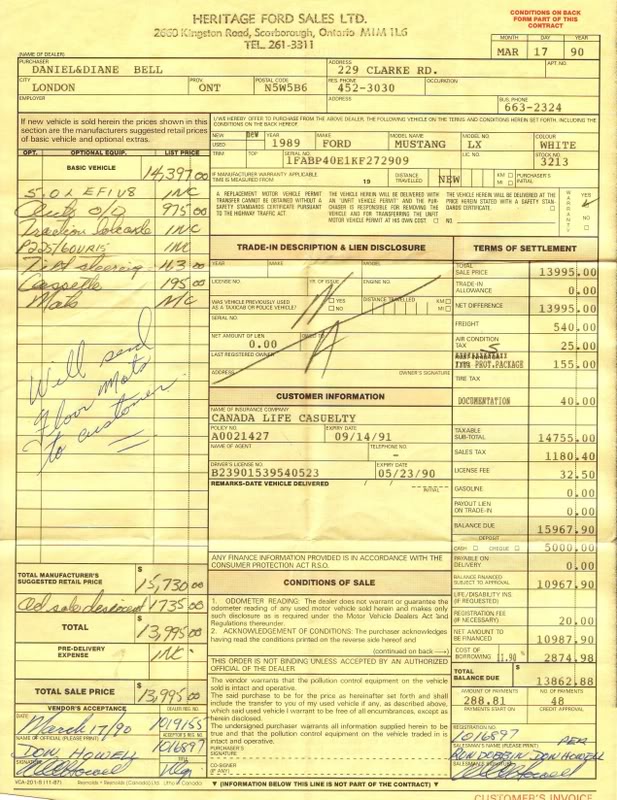 HERITAGE FORD SALES LTD.
2660 Kingston Road, Scorborough, Ontario M1M 1L6
TEL. 261-3311
CONDITIONS ON BACK
FORM PART OF THIS
CONTRACT
MONTH DAY YEAR
MAR 17 90
(NAME OF DEALER)
PURCHASER ADDRESS APT. NO.
DANIEL&DIANE BELL 229 CLARKE RD.
CITY PROV. POSTAL CODE RES. PHONE OCCUPATION
LONDON ONT N5W5B6 452-3030
EMPLOYER ADDRESS BUS. PHONE
663-2324
If new vehicle is sold herein the prices shown in this section are the manufacturers suggested retail prices of basic vehicle and optional extras.
I/WE HEREBY OFFER TO PURCHASE FROM THE ABOVE DEALER, THE FOLLOWING VEHICLE ON THE TERMS AND CONDITIONS HEREIN SET FORTH, INCLUDING THE CONDITIONS ON THE BACK HEREOF.
NEW USED YEAR MAKE MODEL NAME MODEL NO. COLOUR
new 1989 FORD MUSTANG LX WHITE
TRIM TOP SERIAL NO. LIC NO. STOCK NO.
1FABP40E1KF272909 3213
IF MANUFACTURER WARRANTY APPLICABLE
TIME IS MEASURED FROM 19 DISTANCE TRAVELLED NEW KM MI PURCHASER'S INITIAL
A REPLACEMENT MOTOR VEHICLE PERMIT TRANSFER CANNOT BE OBTAINED WITHOUT A SAFETY STANDARDS CERTIFICATE PURSUANT TO THE HIGHWAY TRAFFIC ACT.
THE VEHICLE HEREIN WILL BE DELIVERED WITH AN "UNFIT VEHICLE PERMIT" AND THE PURCHASER IS RESPONSIBLE FOR REMOVING THE VEHICLE AND FOR TRANSFERRING THE UNFIT MOTOR VEHICLE PERMIT AT HIS OWN COST
THE VEHICLE HEREIN WILL BE DELIVERED AT THE PRICE HEREIN STATED WITH A SAFETY STANDARDS CERTIFICATE.
NO.
WARRANTY YES NO
OPT. OPTIONAL EQUIP. LIST PRICE
BASIC VEHICLE 14,397.00
5.0L EFI V8 INC
Auto O/D 975.00
Traction Lok axle INC
P225/60VR15 INC
Tilt steering N3.00
Cassette 195.00
Mats N/C
Will send
floor mats
to customer
TOTAL MANUFACTURER'S SUGGESTED RETAIL PRICE $ 15,730.00
Ad sale discount 1735.00
TOTAL $ 13,995.00
PRE-DELIVERY EXPENSE INC
TOTAL SALE PRICE $ 13,995.00
TRADE-IN DESCRIPTION & LIEN DISCLOSURE
YEAR MAKE MODEL
LICENSE NO. YR. OF ISSUE ENGINE NO.
WAS VEHICLE PREVIOUSLY USED AS A TAXICAB OR POLICE VEHICLE? YES NO DISTANCE TRAVELLED KM MI
SERIAL NO.
NET AMOUNT OF LIEN OWED TO
0.00
LAST REGISTERED OWNER
ADDRESS OWNER'S SIGNATURE
N/A
CUSTOMER INFORMATION
NAME OF INSURANCE COMPANY
CANADA LIFE CASUELTY
POLICY NO. EXPIRY DATE
A0021427 09/14/91
NAME OF AGENT TELEPHONE NO.
-
DRIVER'S LICENSE NO. EXPIRY DATE
B23901539540523 05/23/90
REMARKS-DATE VEHICLE DELIVERED / / INITIAL
ANY FINANCE INFORMATION PROVIDED IS IN ACCORDANCE WITH THE CONSUMER PROTECTION ACT R.S.O.
CONDITIONS OF SALE
1. ODOMETER READING: The dealer does not warrant or guarantee the odometer reading of any used motor vehicle sold herein and makes only such disclosure as is required under the Motor Vehicle Dealers Act and Regulations thereunder.
2. ACKNOWLEDGEMENT OF CONDITIONS: The purchaser acknowledges having read the conditions printed on the reverse side hereof and
(continued on back →)
THIS ORDER IS NOT BINDING UNLESS ACCEPTED BY AN AUTHORIZED OFFICIAL OF THE DEALER
The vendor warrants that the pollution control equipment on the vehicle sold is intact and operative.
The said purchase to be for the price as hereinafter set forth and shall include the transfer to you of my used vehicle if any, as described above, which said used vehicle I warrant to be free of all encumbrances, except as herein disclosed.
The undersigned purchaser warrants all information supplied herein to be true and that the pollution control equipment on the vehicle traded in is intact and operative.
PURCHASER'S SIGNATURE
CO-SIGNER (IF ANY)
TERMS OF SETTLEMENT
TOTAL SALE PRICE 13995.00
TRADE-IN ALLOWANCE 0.00
NET DIFFERENCE 13995.00
FREIGHT 540.00
AIR CONDITION TAX 25.00
PROT.PACKAGE 155.00
TIRE TAX
DOCUMENTATION 40.00
TAXABLE SUB-TOTAL 14755.00
SALES TAX 1180.40
LICENSE FEE 32.50
GASOLINE 0.00
PAYOUT LIEN ON TRADE-IN 0.00
BALANCE DUE 15967.90
DEPOSIT
CASH CHEQUE 5000.00
PAYABLE ON DELIVERY 0.00
BALANCE FINANCED SUBJECT TO APPROVAL 10967.90
LIFE/DISABILITY INS. (IF REQUESTED)
REGISTRATION FEE (IF NECESSARY) 20.00
NET AMOUNT TO BE FINANCED 10987.90
COST OF BORROWING 11.90 % 2874.98
TOTAL BALANCE DUE 13862.88
AMOUNT OF PAYMENTS NO. OF PAYMENTS
288.81 48
PAYMENTS START ON CREDIT APPROVAL
VENDOR'S ACCEPTANCE
DATE DEALER REG. NO.
March 17/90 1019155
NAME OF OFFICIAL (PLEASE PRINT) ACCEPTOR'S REG. NO.
DON HOWELL 1016897
SIGNATURE TITLE
REGISTRATION NO.
1016897 PER
SALESMAN'S NAME (PLEASE PRINT)
RON DOBBIN DON HOWELL
SIGNATURE
VCA-201-5 (11-87) Reynolds + Reynolds (Canada) Ltd. Litho /Canada
▼ (INFORMATION BELOW THIS LINE IS NOT PART OF THE CONTRACT) ▼
CUSTOMER'S INVOICE